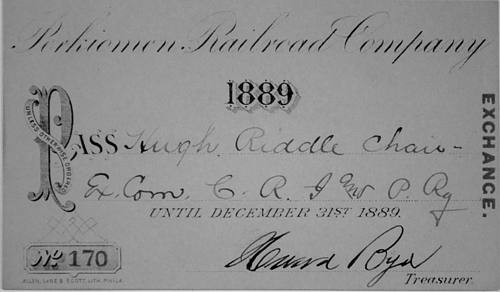 Perkiomen Railroad Company
1889
PASS Hugh Riddle Chair-
UNLESS OTHERWISE ORDERED
Ex. Com. C. R. I and P. Ry
UNTIL DECEMBER 31ST 1889.
EXCHANGE.
No 170
Treasurer.
ALLEN, LANE & SCOTT, LITH. PHILA.